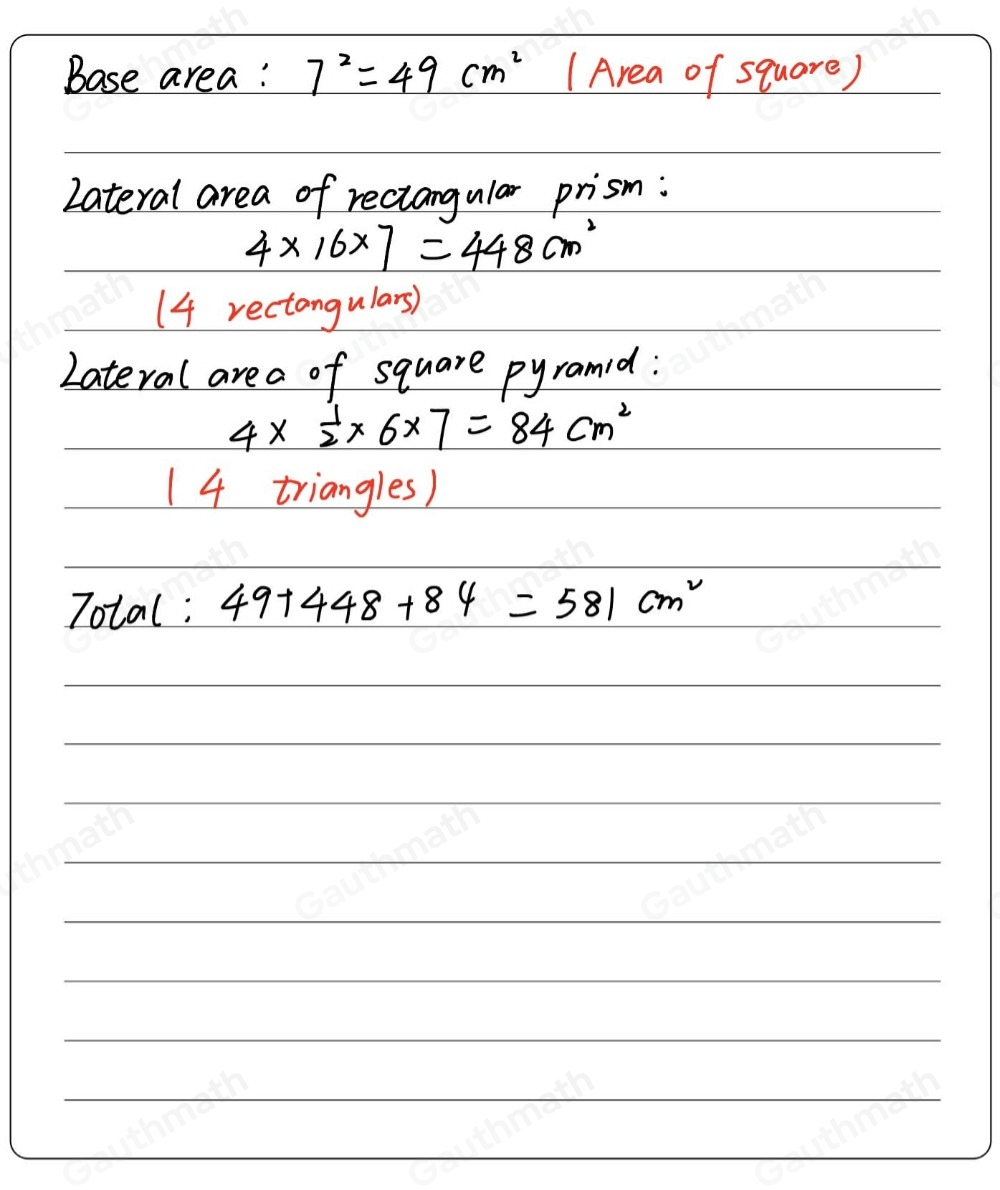 Base area : 7² = 49 cm² (Area of square)
Lateral area of rectangular prism :
4 × 16 × 7 = 448 cm²
(4 rectangulars)
Lateral area of square pyramid :
4 × 1/2 × 6 × 7 = 84 cm²
(4 triangles)
Total : 49 + 448 + 84 = 581 cm²
Gauthmath